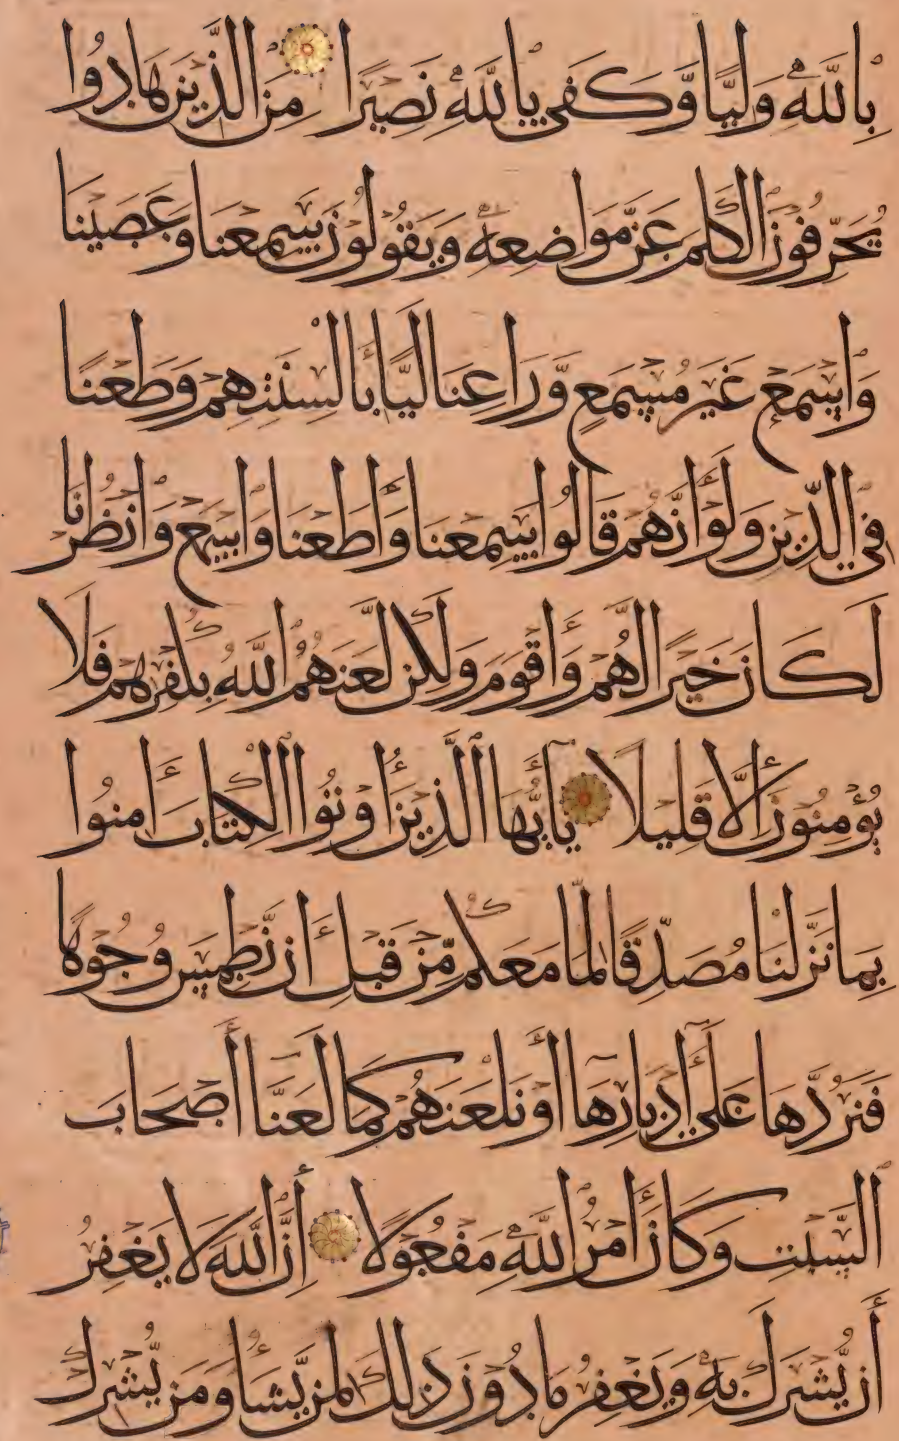 بِاللَّهِ وَلِيًّا وَّكَفَى بِاللَّهِ نَصِيرًا مِنَ الَّذِينَ هَادُوا
يُحَرِّفُونَ الْكَلِمَ عَن مَّوَاضِعِهِ وَيَقُولُونَ سَمِعْنَا وَعَصَيْنَا
وَاسْمَعْ غَيْرَ مُسْمَعٍ وَّرَاعِنَا لَيًّا بِأَلْسِنَتِهِمْ وَطَعْنًا
فِي الدِّينِ وَلَوْ أَنَّهُمْ قَالُوا سَمِعْنَا وَأَطَعْنَا وَاسْمَعْ وَانظُرْنَا
لَكَانَ خَيْرًا لَّهُمْ وَأَقْوَمَ وَلَكِن لَّعَنَهُمُ اللَّهُ بِكُفْرِهِمْ فَلَا
يُؤْمِنُونَ إِلَّا قَلِيلًا يَا أَيُّهَا الَّذِينَ أُوتُوا الْكِتَابَ آمِنُوا
بِمَا نَزَّلْنَا مُصَدِّقًا لِّمَا مَعَكُم مِّن قَبْلِ أَن نَّطْمِسَ وُجُوهًا
فَنَرُدَّهَا عَلَى أَدْبَارِهَا أَوْ نَلْعَنَهُمْ كَمَا لَعَنَّا أَصْحَابَ
السَّبْتِ وَكَانَ أَمْرُ اللَّهِ مَفْعُولًا إِنَّ اللَّهَ لَا يَغْفِرُ
أَن يُّشْرَكَ بِهِ وَيَغْفِرُ مَا دُونَ ذَلِكَ لِمَن يَّشَاءُ وَمَن يُّشْرِكْ